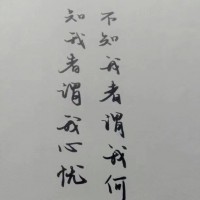 知我者谓我心忧
不知我者谓我何